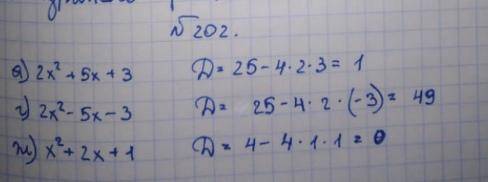 №202.
а) 2x² + 5x + 3 D = 25 - 4 · 2 · 3 = 1
г) 2x² - 5x - 3 D = 25 - 4 · 2 · (-3) = 49
ж) x² + 2x + 1 D = 4 - 4 · 1 · 1 = 0